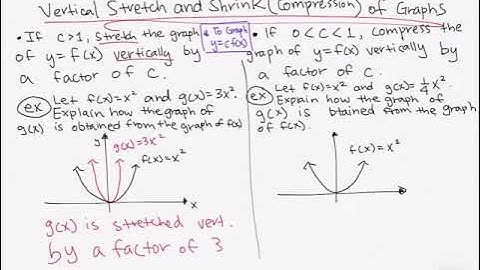 Vertical Stretch and Shrink (Compression) of Graphs
• If C>1, Stretch the graph
of y=f(x) vertically by
a factor of C.
* To Graph
y=cf(x)
• If 0<C<1, Compress the
graph of y=f(x) vertically by
a factor of C.
ex Let f(x)=x² and g(x)=3x².
Explain how the graph of
g(x) is obtained from the graph of f(x)
y
g(x)=3x²
f(x)=x²
x
g(x) is stretched vert.
by a factor of 3
ex Let f(x)=x² and g(x)=¼x².
Explain how the graph of
g(x) is btained from the graph
of f(x).
f(x)=x²